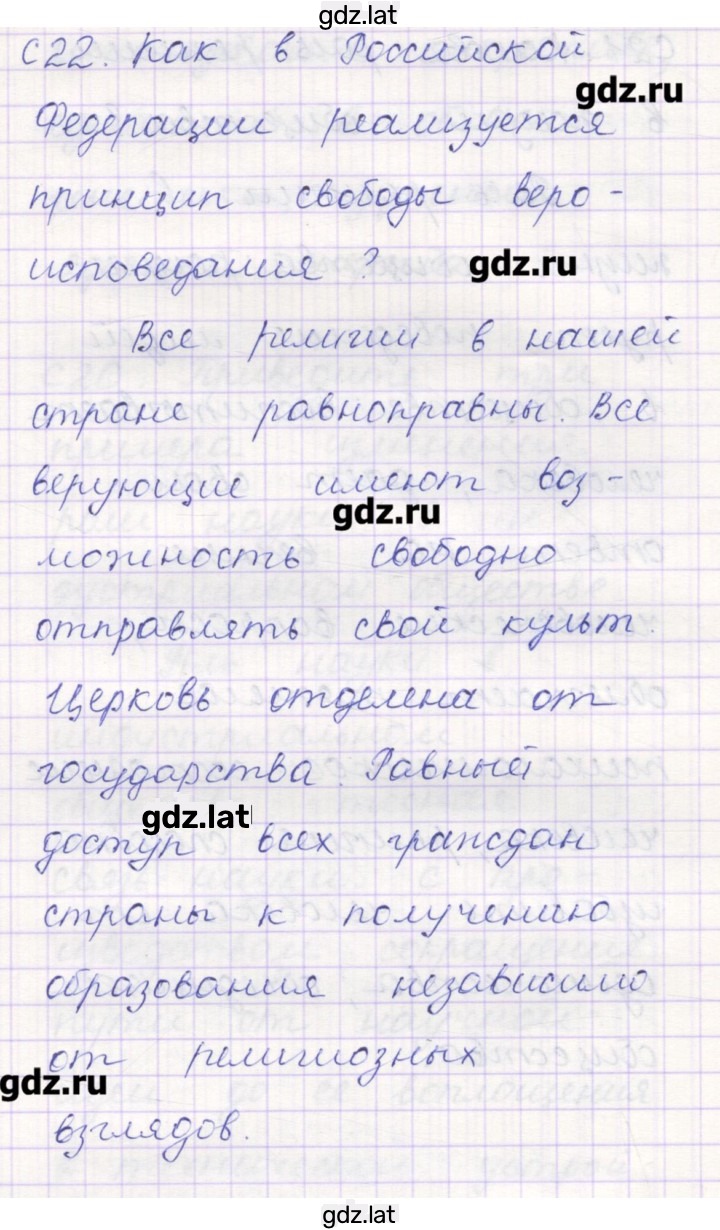 gdz.lat
С22. Как в Российской
gdz.ru
Федерации реализуется
принцип свободы веро-
исповедания?
gdz.ru
Все религии в нашей
стране равноправны. Все
верующие имеют воз-
gdz.ru
можность свободно
отправлять свой культ.
Церковь отделена от
государства. Равный
gdz.lat
доступ всех граждан
страны к получению
образования независимо
от религиозных
gdz.ru
взглядов.
gdz.lat